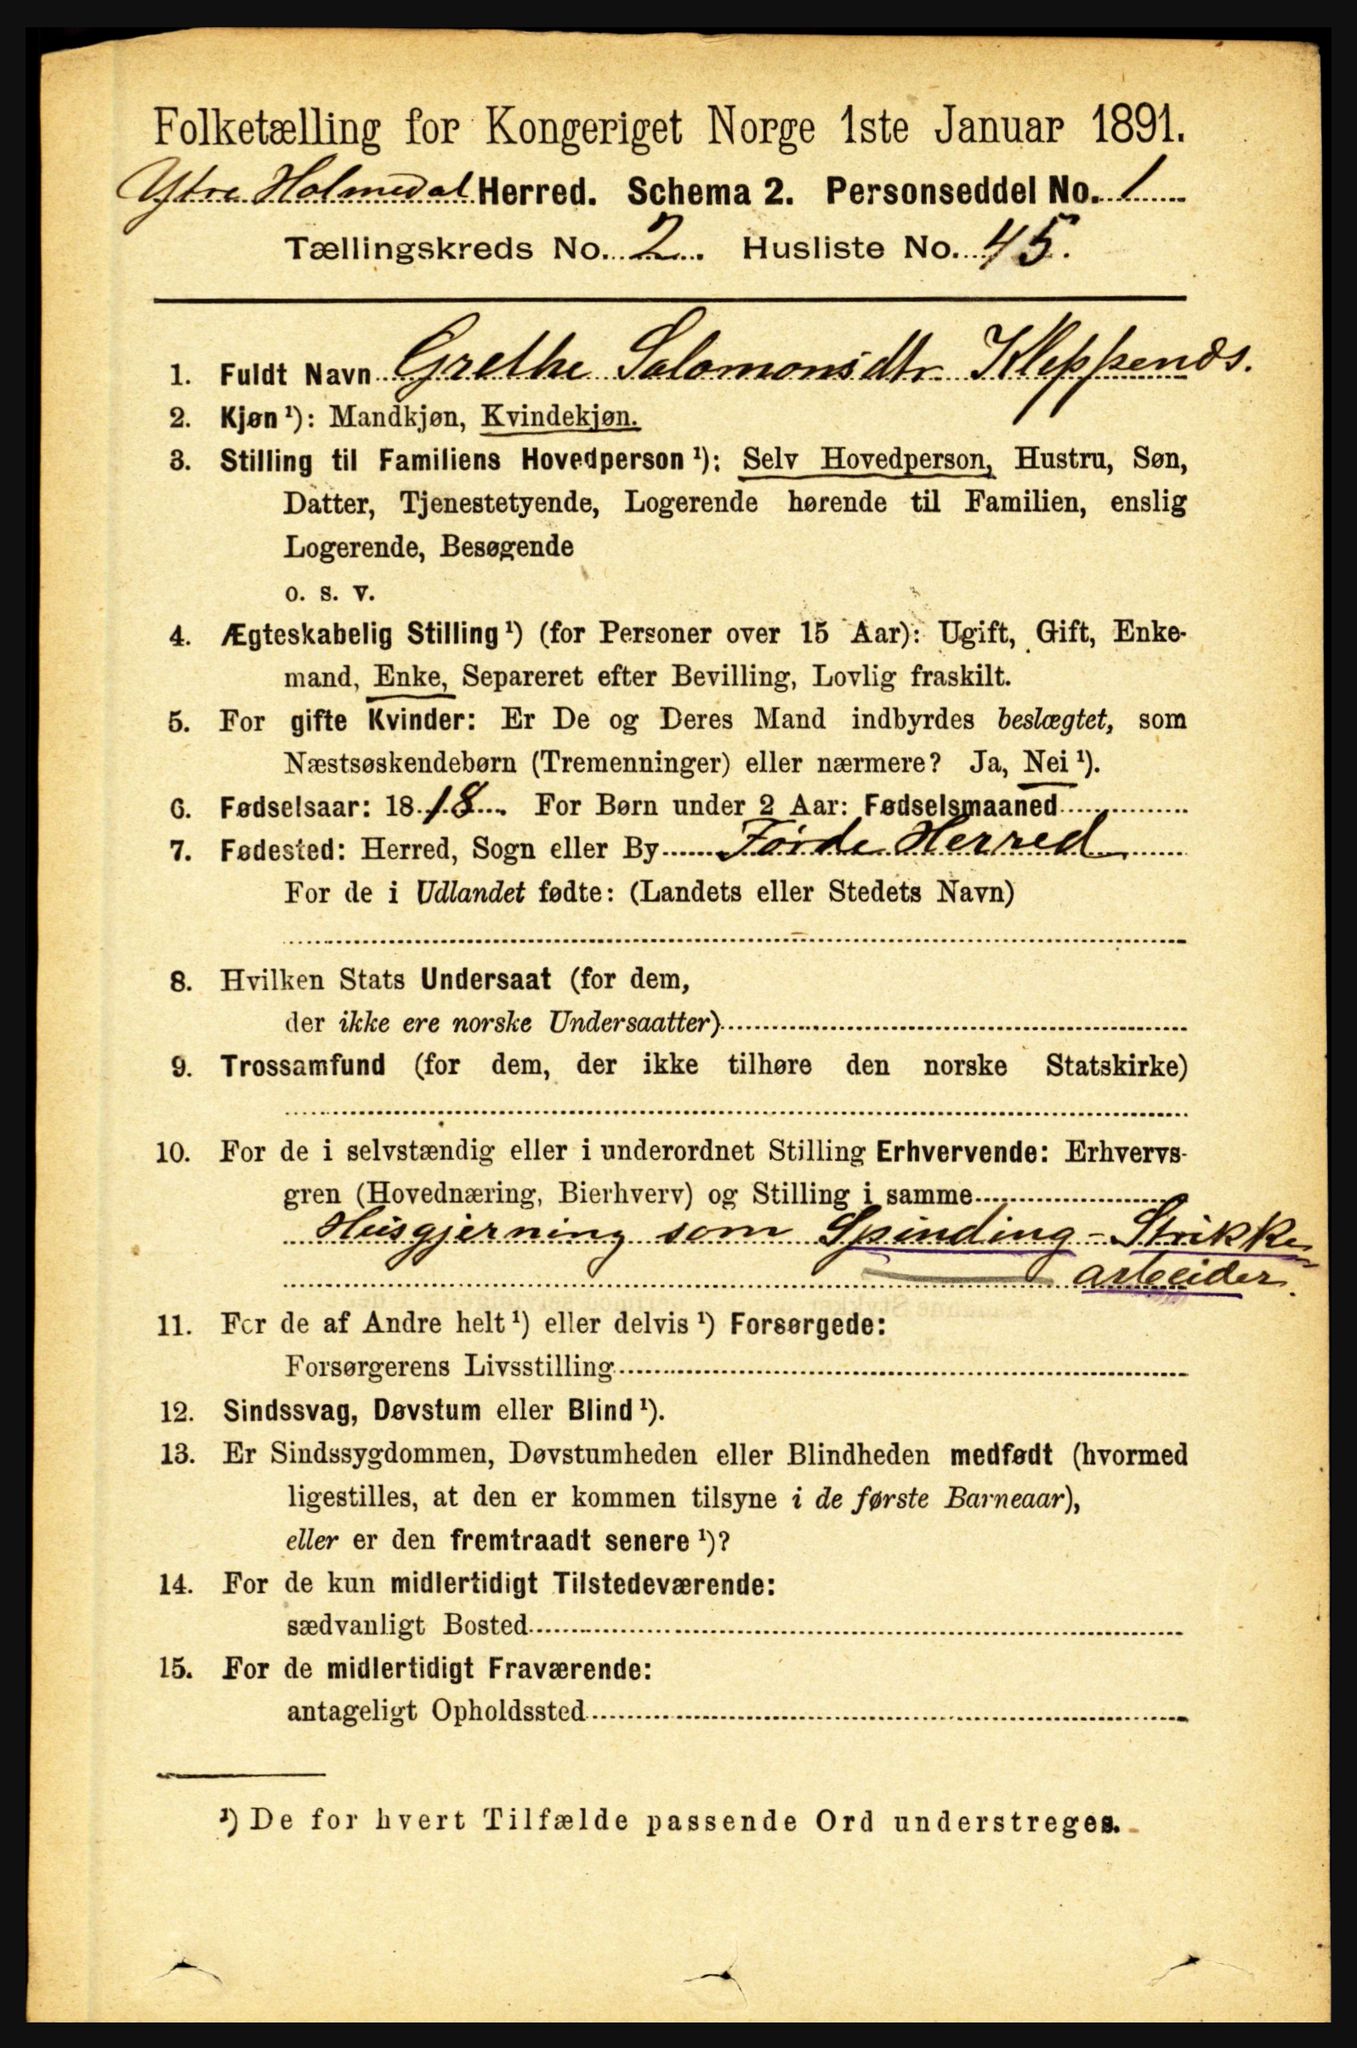 Folketælling for Kongeriget Norge 1ste Januar 1891.
Ytre Holmedal Herred. Schema 2. Personseddel No. 1
Tællingskreds No. 2. Husliste No. 45.
1. Fuldt Navn Grethe Salomonsdtr. Kleppenæs.
2. Kjøn ¹): Mandkjøn, Kvindekjøn.
3. Stilling til Familiens Hovedperson ¹): Selv Hovedperson, Hustru, Søn,
Datter, Tjenestetyende, Logerende hørende til Familien, enslig
Logerende, Besøgende
o. s. v.
4. Ægteskabelig Stilling ¹) (for Personer over 15 Aar): Ugift, Gift, Enke-
mand, Enke, Separeret efter Bevilling, Lovlig fraskilt.
5. For gifte Kvinder: Er De og Deres Mand indbyrdes beslægtet, som
Næstsøskendebørn (Tremenninger) eller nærmere? Ja, Nei ¹).
6. Fødselsaar: 1818. For Børn under 2 Aar: Fødselsmaaned
7. Fødested: Herred, Sogn eller By Førde Herred
For de i Udlandet fødte: (Landets eller Stedets Navn)
8. Hvilken Stats Undersaat (for dem,
der ikke ere norske Undersaatter)
9. Trossamfund (for dem, der ikke tilhøre den norske Statskirke)
10. For de i selvstændig eller i underordnet Stilling Erhvervende: Erhvervs-
gren (Hovednæring, Bierhverv) og Stilling i samme
Husgjerning som Spinding - Strikke
arbeider.
11. For de af Andre helt ¹) eller delvis ¹) Forsørgede:
Forsørgerens Livsstilling
12. Sindssvag, Døvstum eller Blind ¹).
13. Er Sindssygdommen, Døvstumheden eller Blindheden medfødt (hvormed
ligestilles, at den er kommen tilsyne i de første Barneaar),
eller er den fremtraadt senere ¹)?
14. For de kun midlertidigt Tilstedeværende:
sædvanligt Bosted
15. For de midlertidigt Fraværende:
antageligt Opholdssted
¹) De for hvert Tilfælde passende Ord understreges.